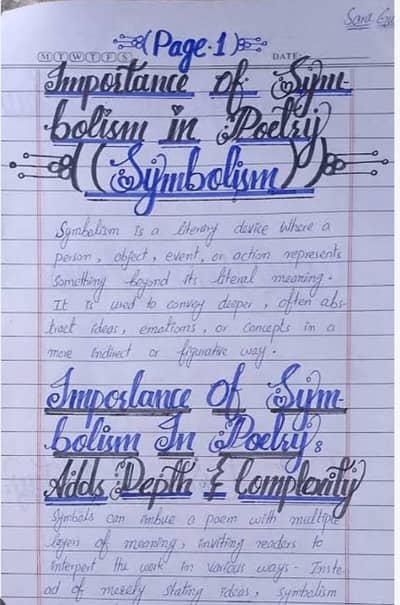 Sara
Page-1
M T W T F S
DATE:
Importance of Sym-
bolism in Poetry
(Symbolism)
Symbolism Is a literary device where a
person, object, event, or action represents
something beyond its literal meaning.
It is used to convey deeper, often abs-
tract ideas, emotions, or concepts in a
more indirect or figurative way.
Importance Of Sym-
bolism In Poetry:
Adds Depth & Complexity
Symbols can imbue a poem with multiple
layers of meaning, inviting readers to
interpert the work in various ways. Inste-
ad of merely stating ideas, symbolism